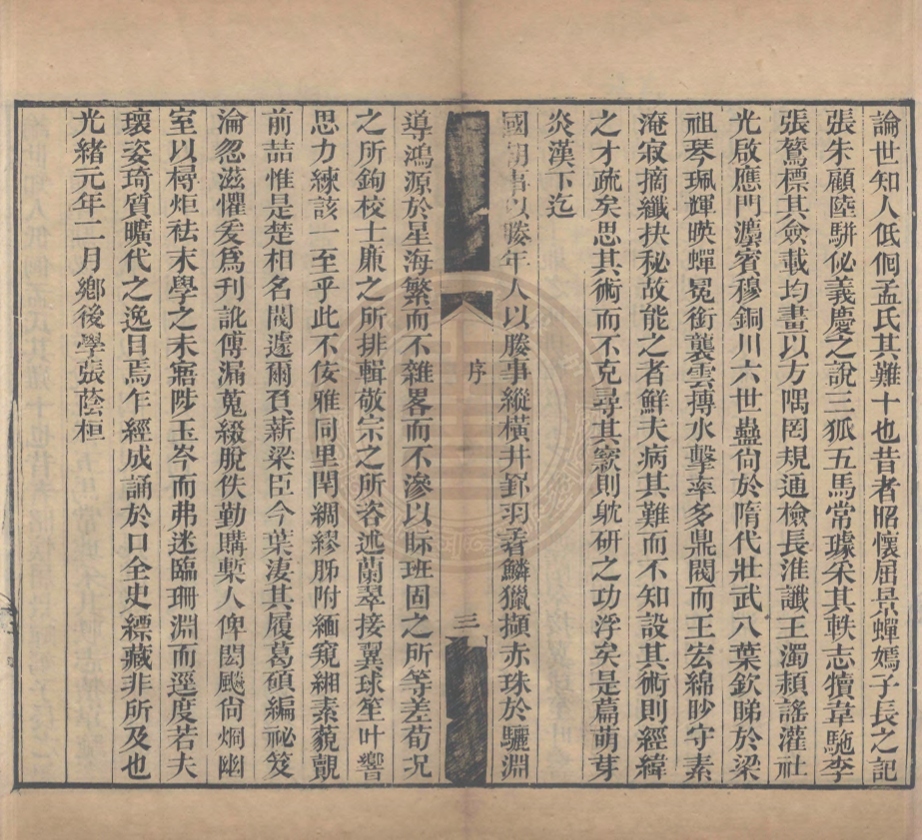 論世知人低佪孟氏其難十也昔者昭懷屈景蟬嫣子長之記
張朱顧陸駢佖義慶之說三狐五馬常璩采其軼志犢韋駞李
張鷟標其僉載均畫以方隅罔規通檢長淮讖王濁潁謠灌社
光啟應門灋賓穆銅川六世蠱尙於隋代壯武八葉欽睇於梁
祖琴珮輝暎蟬冕銜襲雲摶水擊率多鼎閥而王宏綿眇守素
淹寂摘纖抉秘故能之者鮮夫病其難而不知設其術則經緯
之才疏矣思其術而不克尋其窾則躭研之功浮矣是篇萌芽
炎漢下迄
國朝事以媵年人以媵事縱橫井鈲羽羣鱗獵擷赤珠於驪淵
序
三
導鴻源於星海繁而不雜畧而不滲以眎班固之所等差荀況
之所鉤校士廉之所排輯敬宗之所咨述蘭翠接翼球笙叶響
思力練該一至乎此不侫雅同里閈綢繆肺附緬窺緗素藐覿
前喆惟是楚相名閥遽爾負薪梁臣今葉淒其履葛碩編祕笈
淪忽滋懼爰爲刋訛傳漏蒐綴脫佚勤購槧人俾閎颷尙烱幽
室以樳炬袪末學之未寤陟玉岑而弗迷臨珊淵而逕度若夫
瓌姿琦質曠代之逸目焉乍經成誦於口全史縹藏非所及也
光緒元年二月鄉後學張蔭桓